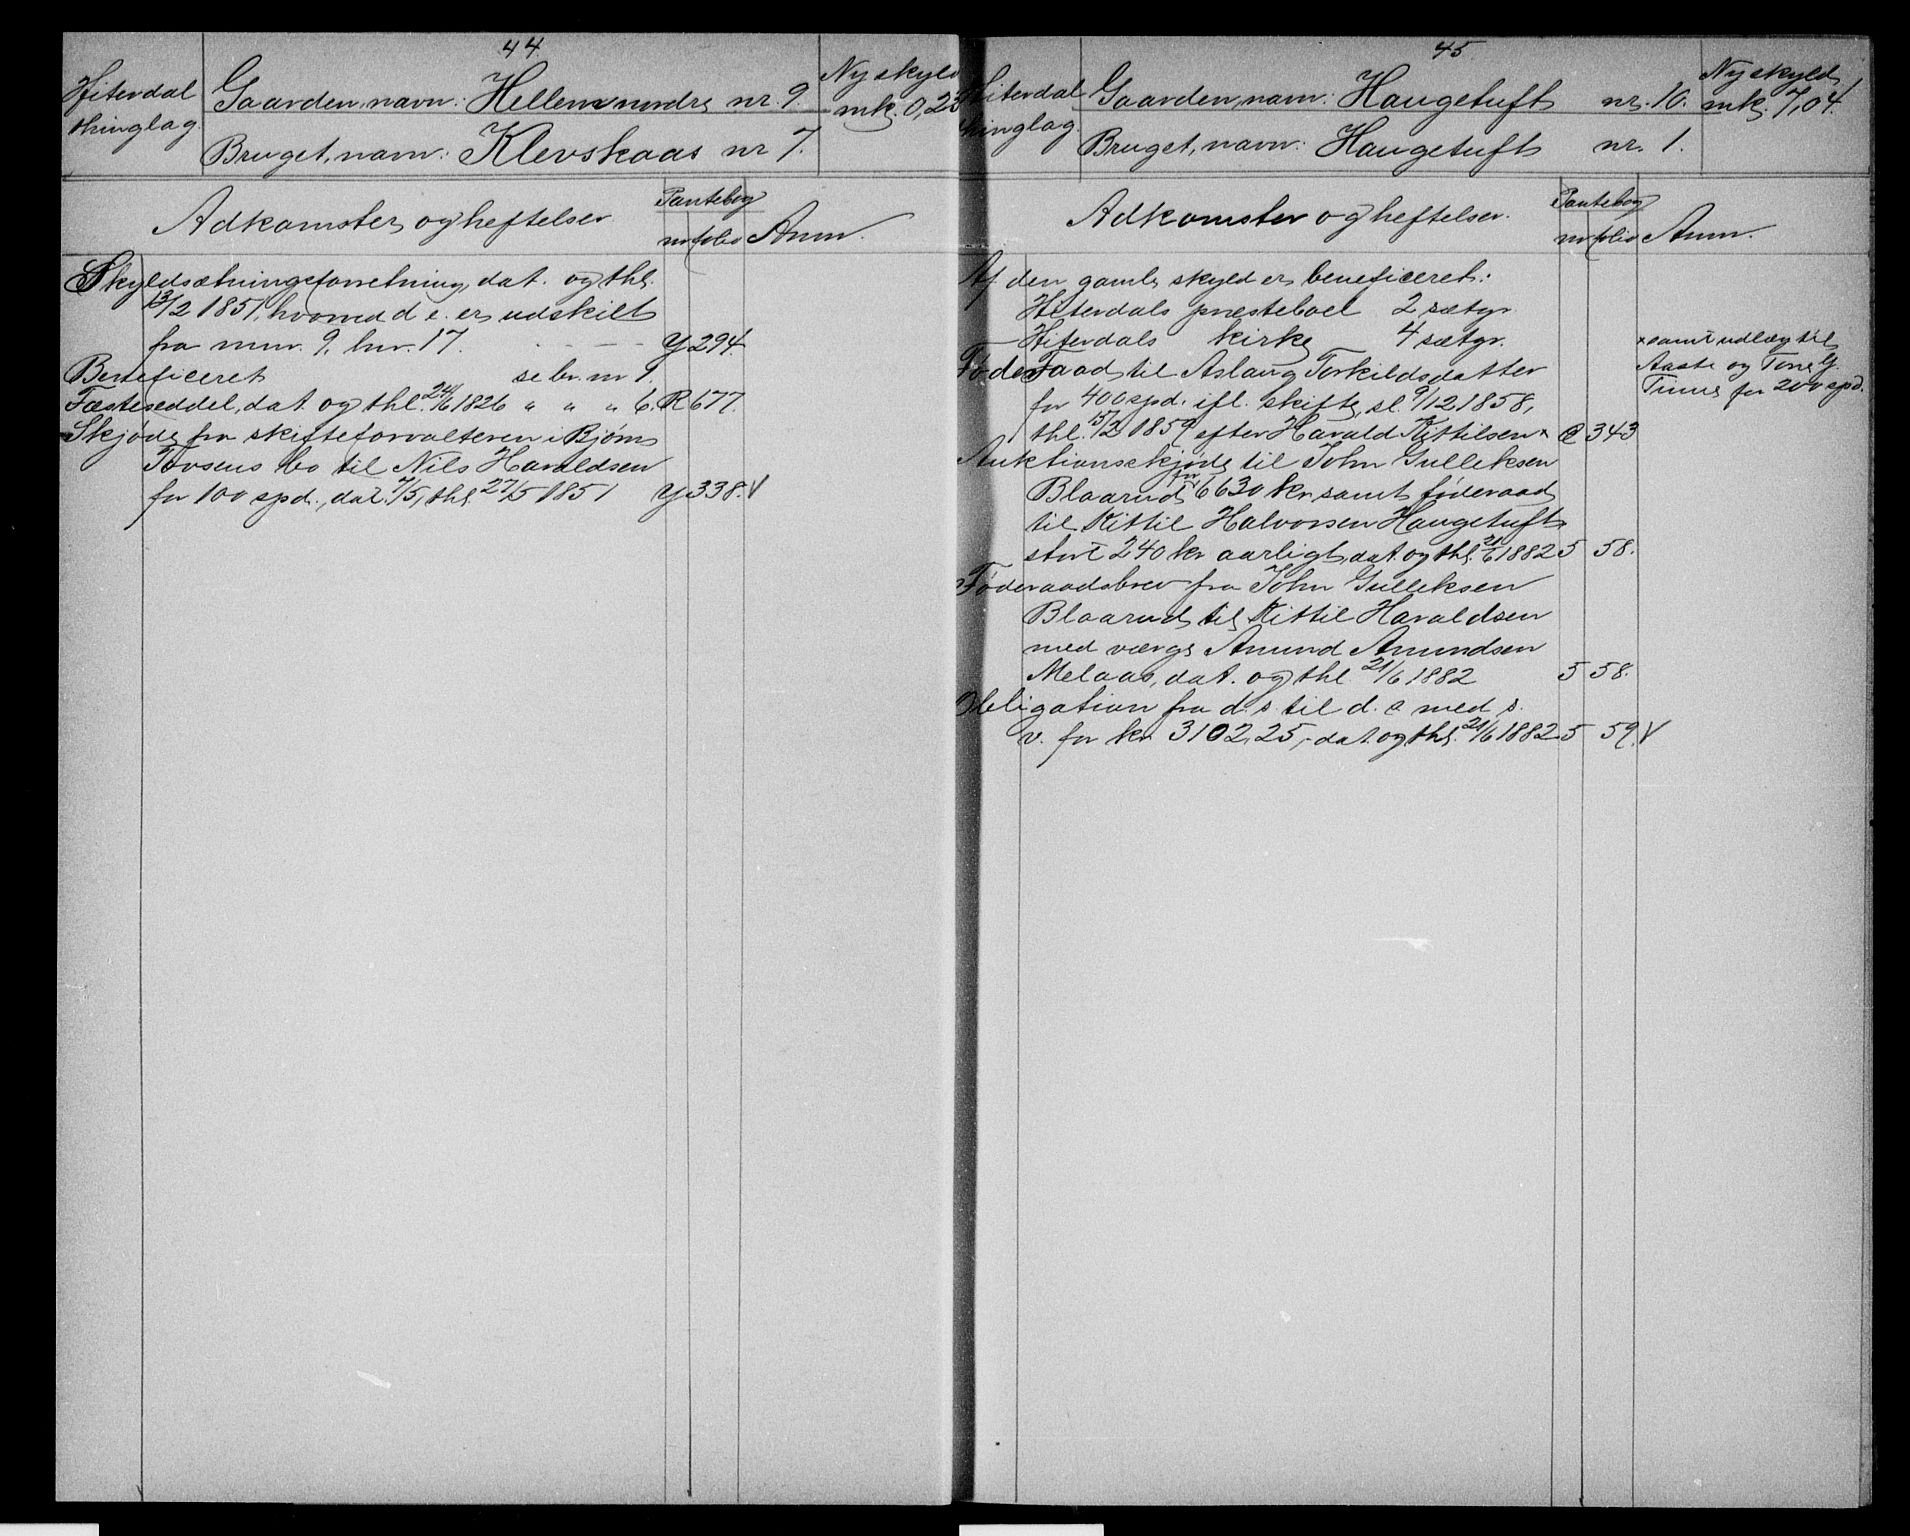 44
Hiterdal
thinglag.
Gaardens navn: Hellem nordre nr. 9.
Bruget, navn: Klevskaas nr 7.
Ny skyld
mk. 0,23
Adkomster og heftelser
Pantebog
nr folio
Anm.
Skyldsætningsforretning, dat. og thl.
13/2 1851, hvorved d. e. er udskilt
fra mnr. 9, lnr. 17. - - - - Y 294.
Beneficeret se br. nr 1.
Fæsteseddel, dat. og thl. 24/6 1826 " " " 6. R 677.
Skjøde fra skifteforvalteren i Bjørn
Torsens bo til Nils Haraldsen
for 100 spd., dat. 7/5, thl. 27/5 1851 Y 338. V
45
Hiterdal
thinglag.
Gaarden, navn: Haugetuft nr. 10.
Bruget, navn: Haugetuft nr. 1.
Ny skyld
mk. 7,04.
Adkomster og heftelser.
Pantebog
nr folio
Anm.
Af den gamle skyld er beneficeret:
Hiterdals præsteboel 2 sætgr.
Hiterdals kirke 4 sætgr.
Føderaad til Aslaug Torkildsdatter
for 400 spd. ifl. skifte, sl. 9/12 1858,
thl. 15/2 1859 efter Harald Kittilsen × C 343
× samt udlæg til
Aaste og Tone G.
Tinne for 200 spd.
Auktionsskjøde til John Gulleksen
Blaarud for 6630 kr. samt føderaad
til Kittil Halvorsen Haugetuft
stort 240 kr aarligt, dat. og thl. 21/6 1882 5 58.
Føderaadsbrev fra John Gulleksen
Blaarud til Kittil Haraldsen
med værge Amund Amundsen
Melaas, dat. og thl. 21/6 1882 5 58.
Obligation fra d. s. til d. s. med s.
v. for kr. 3102,25, - dat. og thl. 21/6 1882 5 59. V